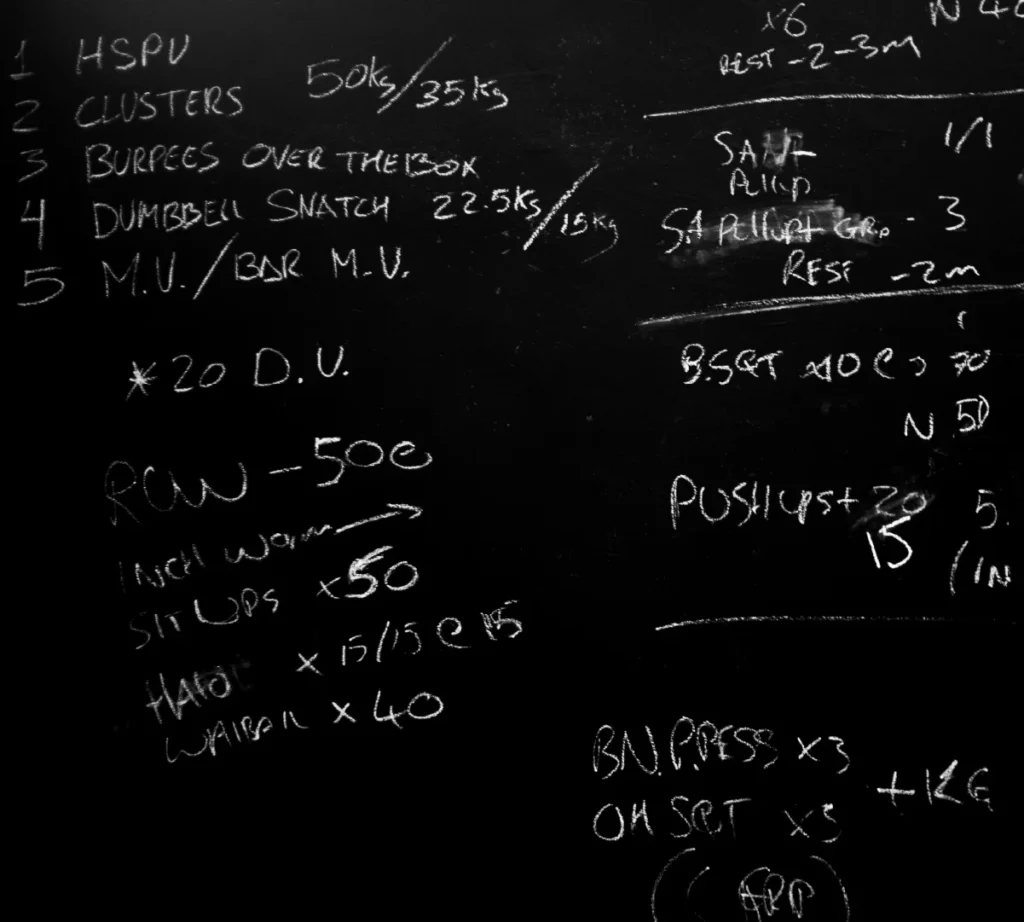 1 HSPU
2 CLUSTERS 50Kg/35Kg
3 BURPEES OVER THE BOX
4 DUMBBELL SNATCH 22.5Kg/15Kg
5 M.U./BAR M.U.
*20 D.U.
ROW - 50C
INCH WORM →
SIT UPS x50
x 15/15 @ 15
WALLBALL x 40
x6
REST - 2 - 3m
1/1
PULLUP
SA PULLUP+ GRIP - 3
REST - 2m
B.SQT x10 @
N 50
PUSHUPS + 20
15
5.
/IN
BN.P.PRESS x3
+KG
OH SQT x3